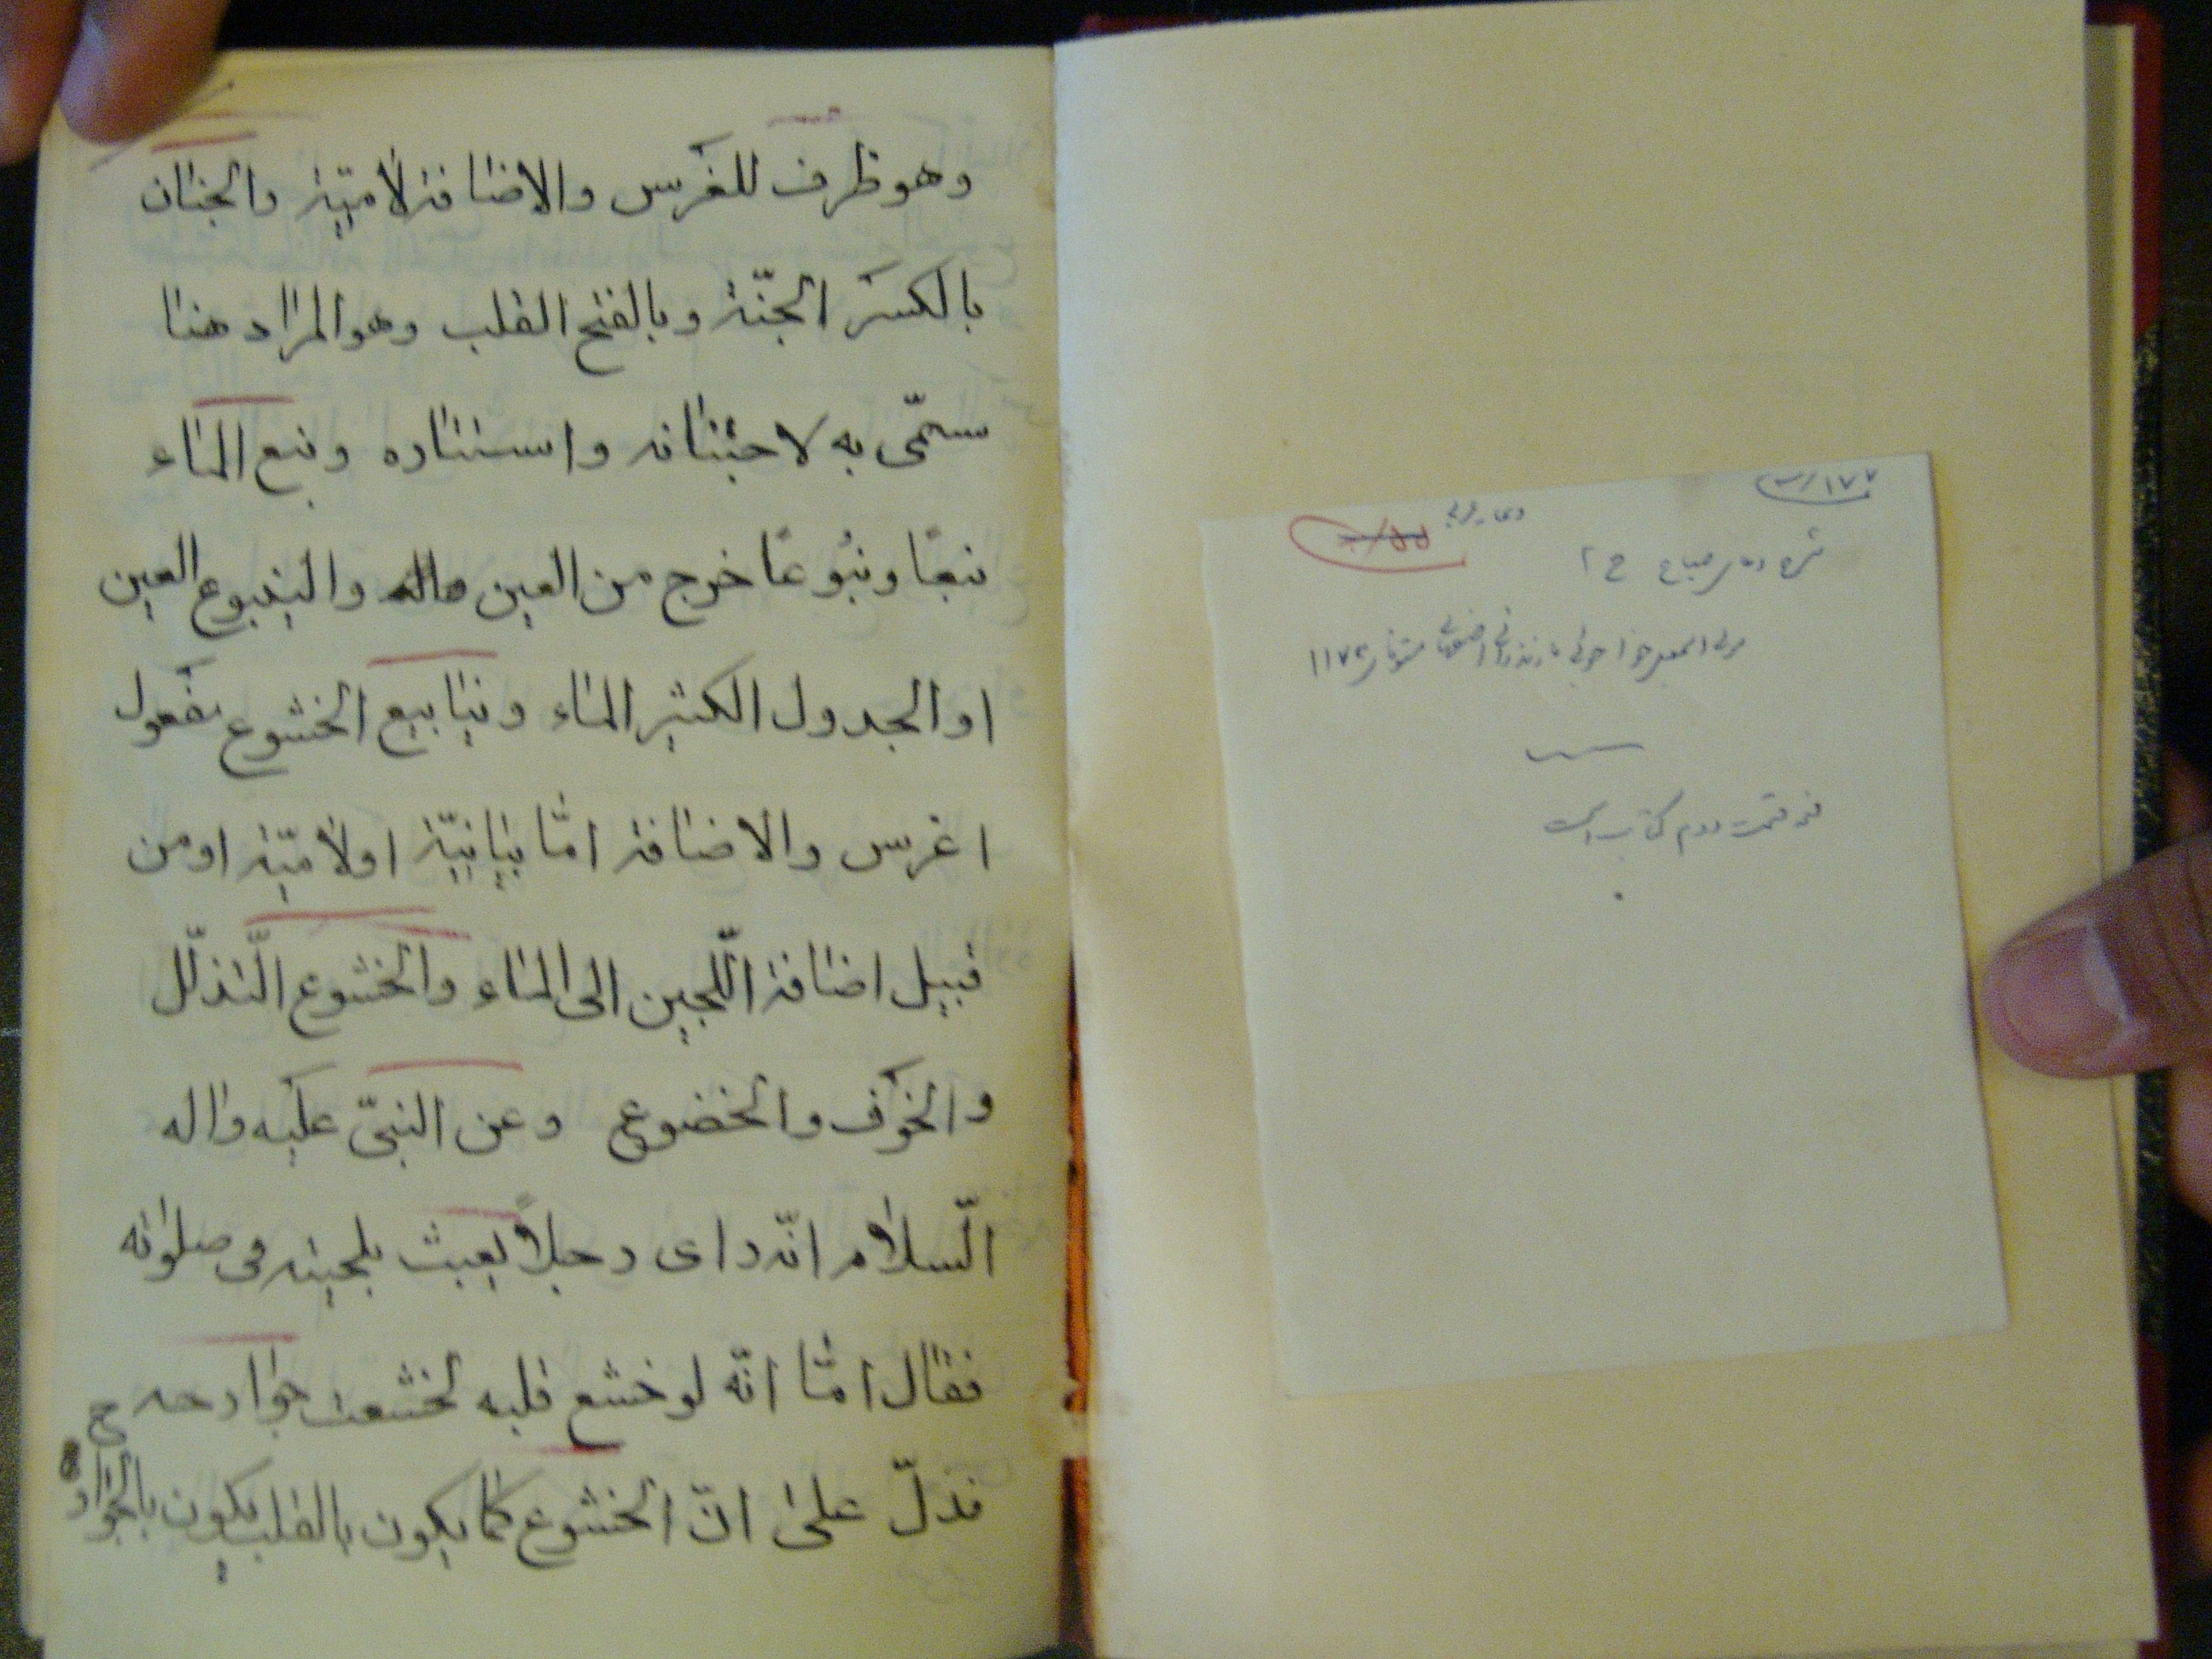 وهو ظرف للغرس والاضافة لاميّة والجنان
بالكسر الجنّة وبالفتح القلب وهو المراد هنا
سمّى به لاجتنانه واستتاره ونبع الماء
نبعًا ونبُوعًا خرج من العين والينبوع العين
او الجدول الكثير الماء وينابيع الخشوع مفعول
اغرس والاضافة امّا بيانيّة اولاميّة اومن
قبيل اضافة اللّجين الى الماء والخشوع التّذلّل
والخوف والخضوع وعن النبىّ عليه واله
السّلام انّه راى رجلاً يعبث بلحيته فى صلوته
فقال امّا انّه لو خشع قلبه لخشعت جوارحه ح
فدلّ على انّ الخشوع كما يكون بالقلب يكون بالجوار
٣/١٧٧
شرح دعاى صباح ج ٢
خواجوئى مازندرانى اصفهانى متوفاى ١١٧٣
قسمت دوم كتاب است